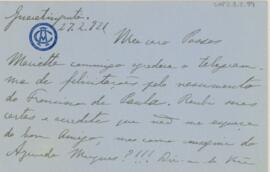 Guaratinguetá
27.2.921
Meu caro Passos
Marietta commigo agradece o telegram-
ma de felicitações pelo nascimento
do Francisco de Paula. Recebi suas
cartas e acredito que não me esqueço
do bom Amigo, mas como
Azevedo Marques?!!!